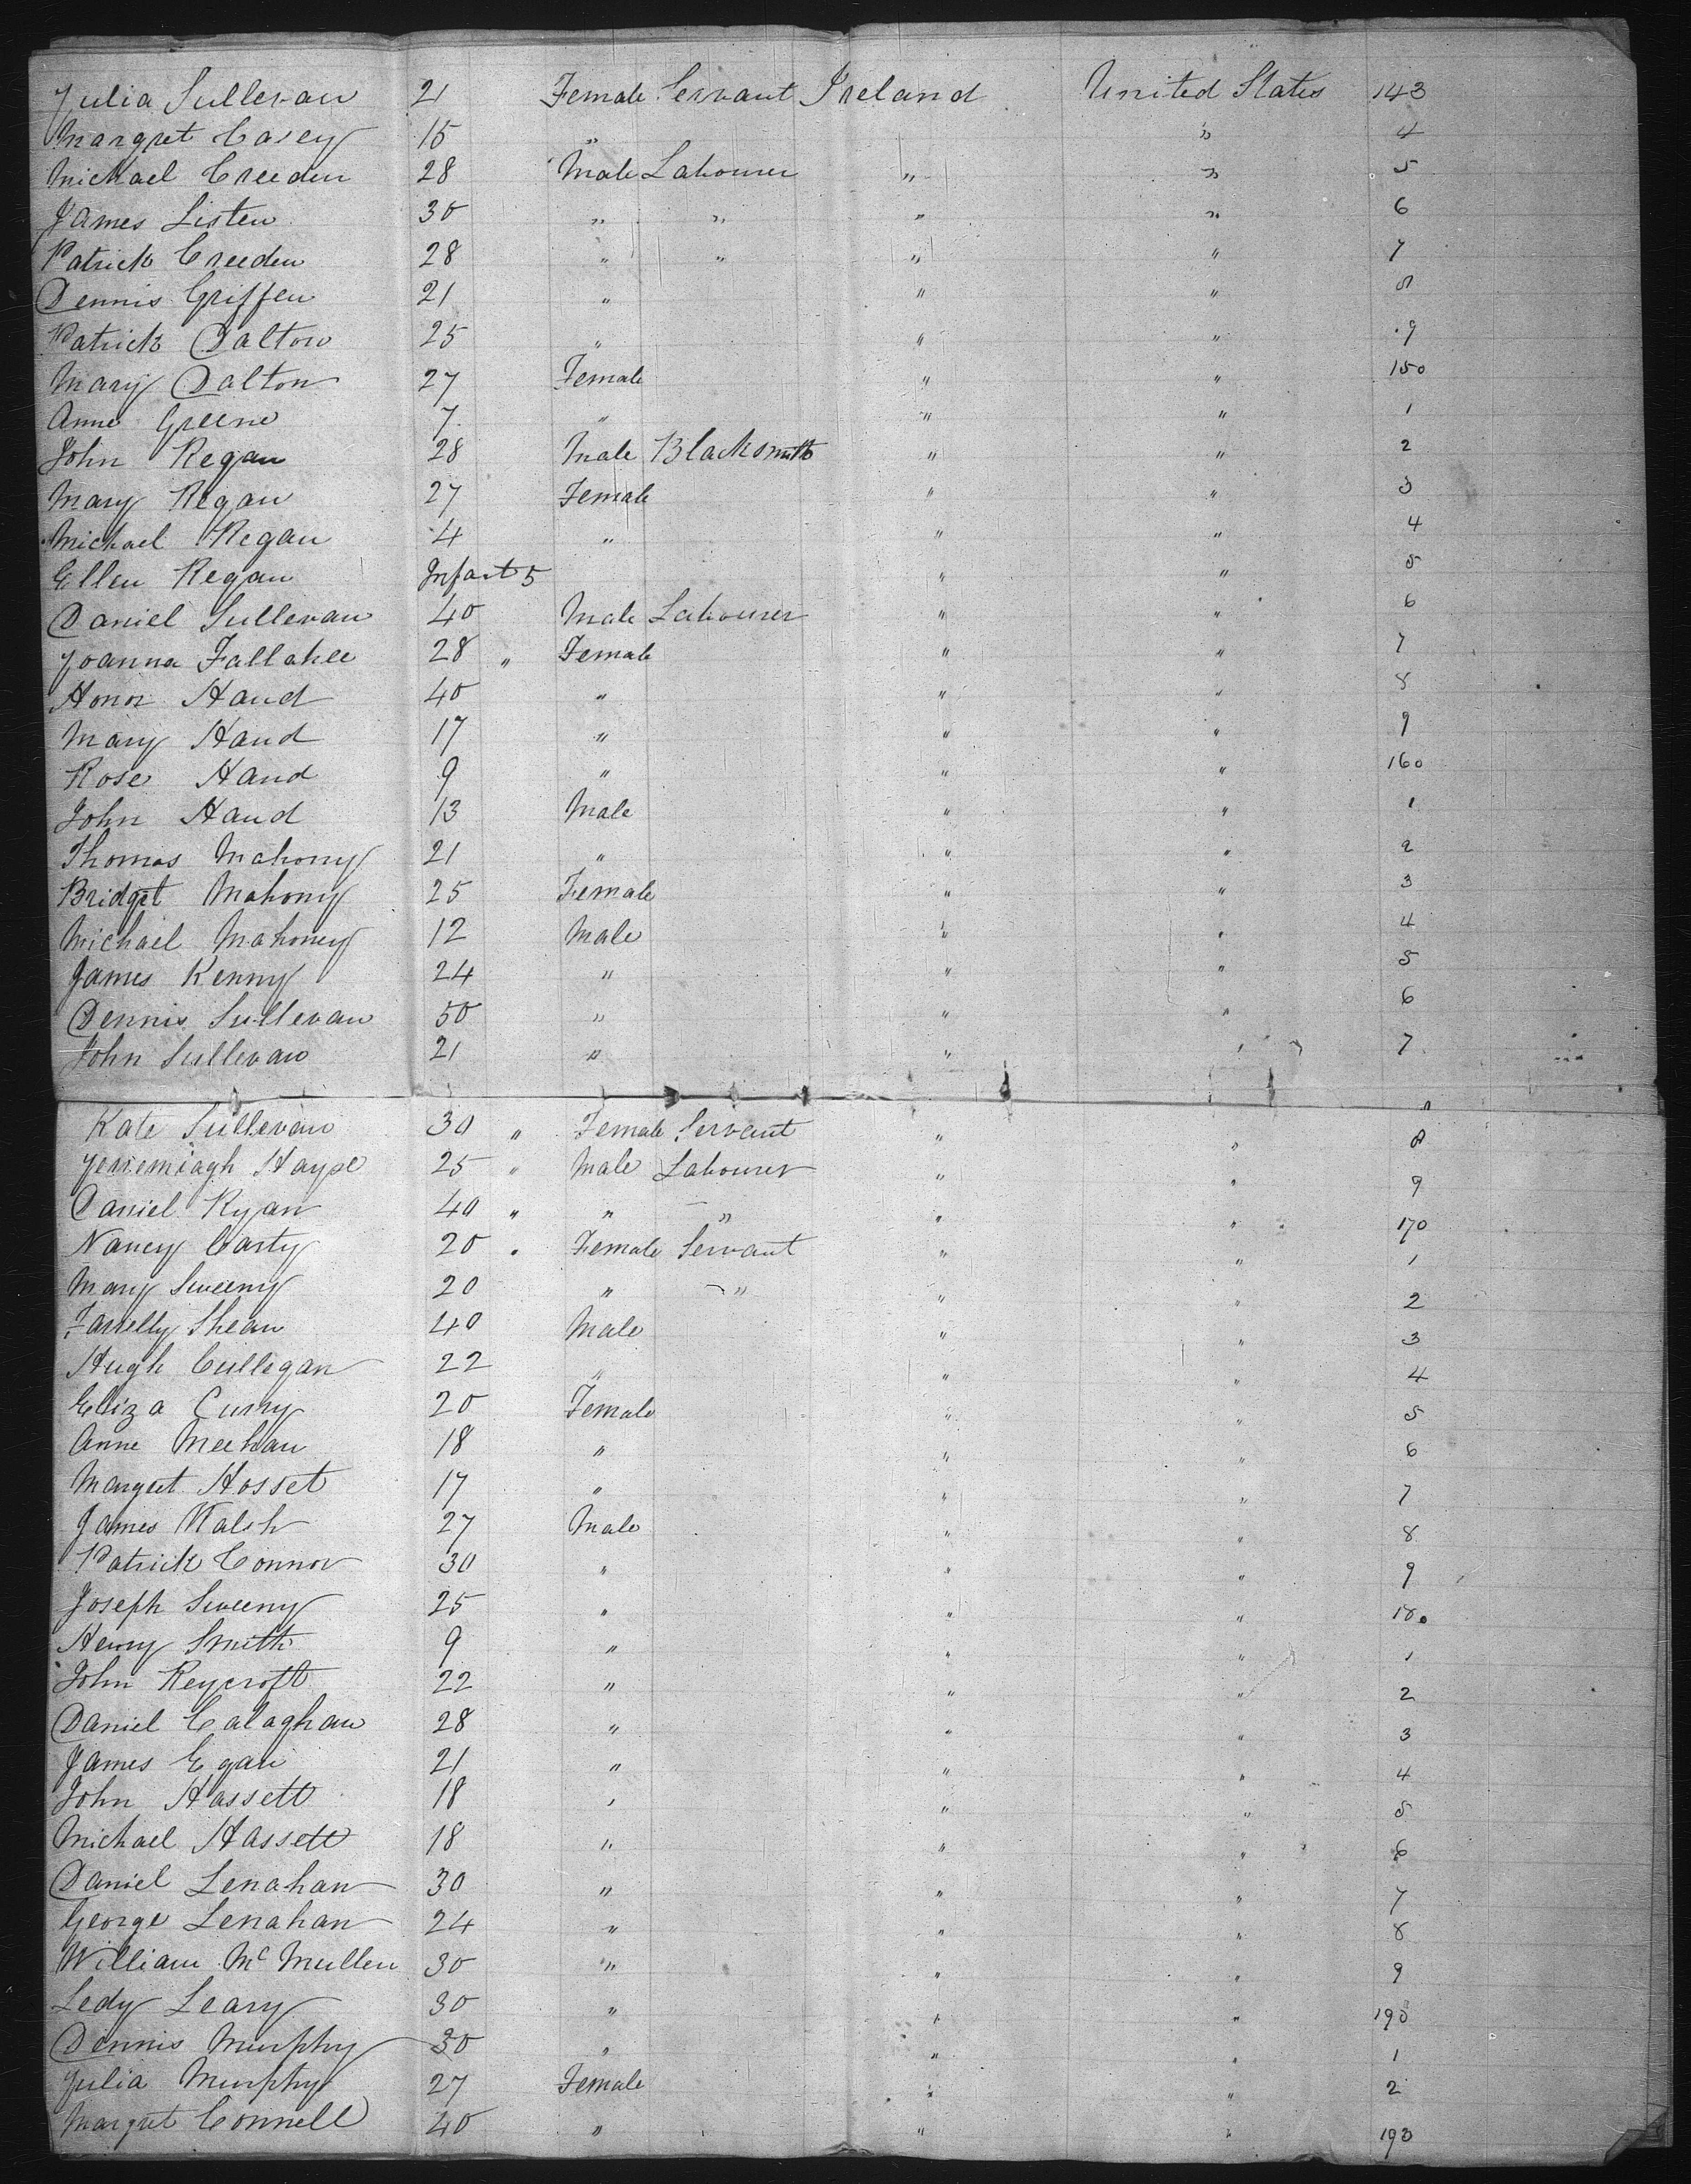 Julia Sullevan 21 Female Servant Ireland United States 143
Margret Casey 15 " " 4
Michael Creeden 28 Male Labourer " " 5
James Listen 30 " " " " 6
Patrick Creeden 28 " " " " 7
Dennis Griffen 21 " " " 8
Patrick Dalton 25 " " " 9
Mary Dalton 27 Female " " 150
Anne Greene 7 " " " 1
John Regan 28 Male Blacksmith " " 2
Mary Regan 27 Female " " 3
Michael Regan 4 " " " 4
Ellen Regan Infant 5 " " 5
Daniel Sullevan 40 Male Labourer " " 6
Joanna Fallahee 28 " Female " " 7
Honor Hand 40 " " " 8
Mary Hand 17 " " " 9
Rose Hand 9 " " " 160
John Hand 13 Male " " 1
Thomas Mahony 21 " " " 2
Bridget Mahony 25 Female " " 3
Michael Mahoney 12 Male " " 4
James Kenny 24 " " " 5
Dennis Sullevan 50 " " " 6
John Sullevan 21 " " " 7
Kate Sullevan 30 " Female Servant " " 8
Jerremiagh Hayse 25 " Male Labourer " " 9
Daniel Ryan 40 " " " " " 170
Nancy Carty 20 " Female Servant " " 1
Mary Sweeny 20 " " " " 2
Farrelly Shean 40 Male " " 3
Hugh Cullegan 22 " " " 4
Eliza Curry 20 Female " " 5
Anne Meehan 18 " " " 6
Margret Hosset 17 " " " 7
James Walsh 27 Male " " 8
Patrick Connor 30 " " " 9
Joseph Sweeny 25 " " " 180
Henry Smith 9 " " " 1
John Reycroft 22 " " " 2
Daniel Calaghan 28 " " " 3
James Egan 21 " " " 4
John Hassett 18 " " " 5
Michael Hassett 18 " " " 6
Daniel Lenahan 30 " " " 7
George Lenahan 24 " " " 8
William Mc Mullen 30 " " " 9
Ledy Leary 30 " " " 190
Dennis Murphy 30 " " " 1
Julia Murphy 27 Female " " 2
Margret Connell 40 " " " 193